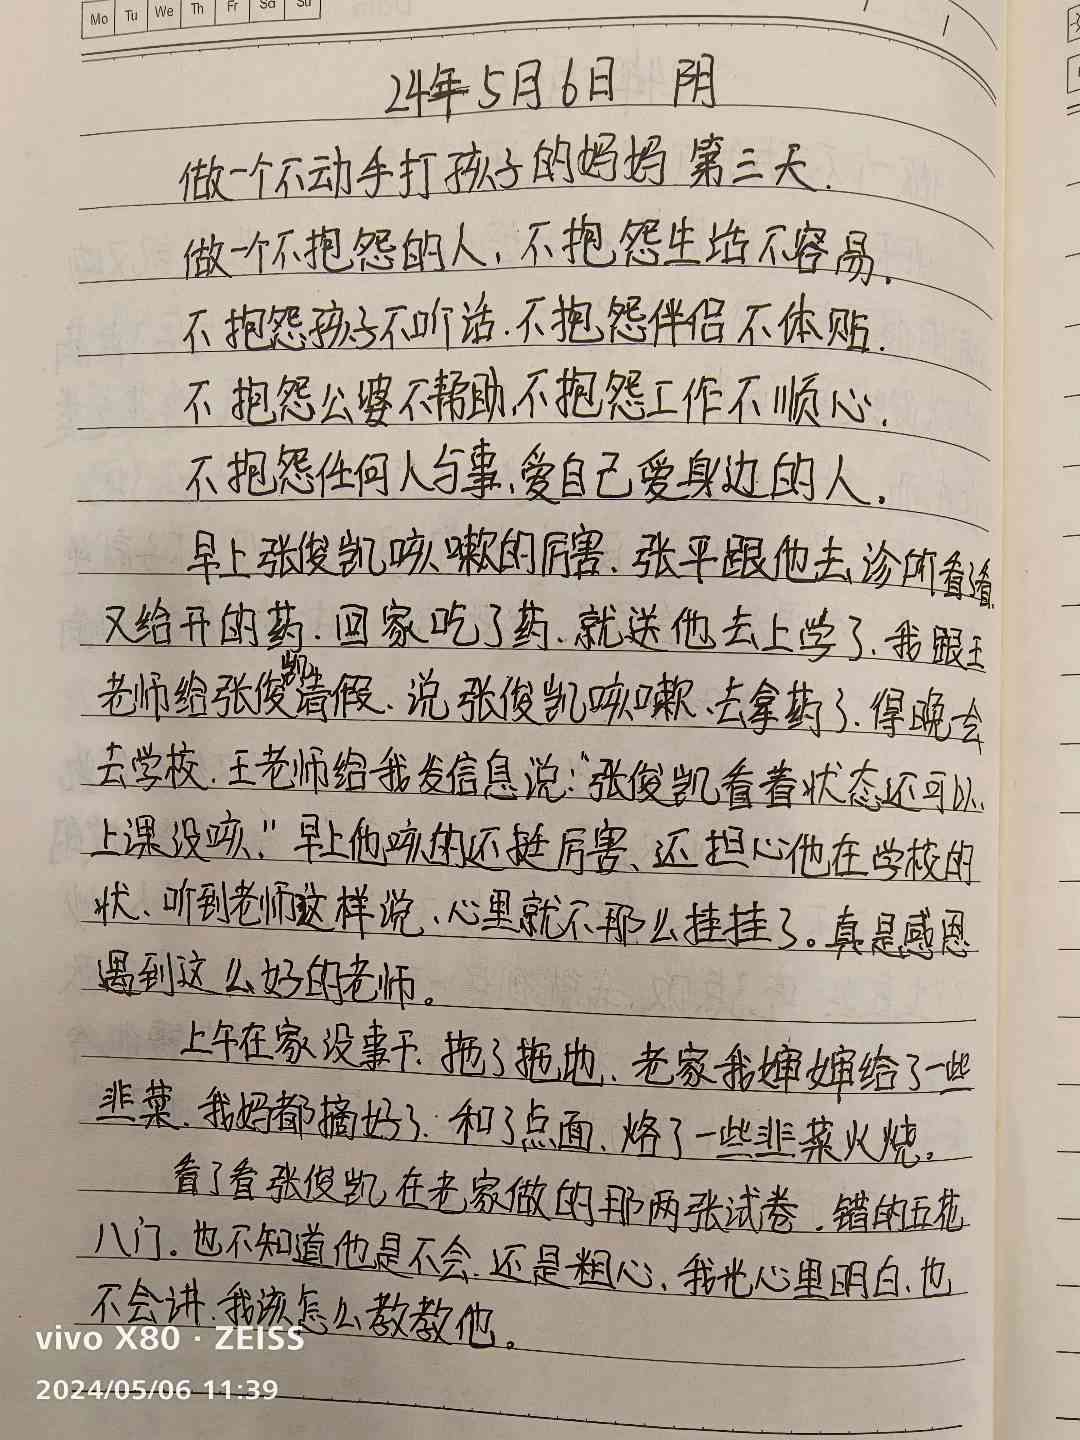 Mo Tu We Th Fr Sa Su
24年5月6日 阴
做一个不动手打孩子的妈妈 第三天.
做一个不抱怨的人,不抱怨生活不容易.
不抱怨孩子不听话.不抱怨伴侣不体贴.
不抱怨公婆不帮助,不抱怨工作不顺心.
不抱怨任何人与事,爱自己爱身边的人.
早上张俊凯咳嗽的厉害.张平跟他去诊所看看
又给开的药.回家吃了药.就送他去上学了.我跟王
老师给张俊凯请假.说张俊凯咳嗽、去拿药了.得晚一会
去学校.王老师给我发信息说:"张俊凯看着状态还可以.
上课没咳."早上他咳的还挺厉害、还担心他在学校的
状、听到老师这样说、心里就不那么挂挂了。真是感恩
遇到这么好的老师。
上午在家没事干.拖了拖地.老家我婶婶给了一些
韭菜.我妈都摘好了.和了点面.烙了一些韭菜火烧。
看了看张俊凯在老家做的那两张试卷.错的五花
八门。也不知道他是不会.还是粗心、我光心里明白.也
不会讲.我该怎么教教他。
vivo X80 · ZEISS
2024/05/06 11:39